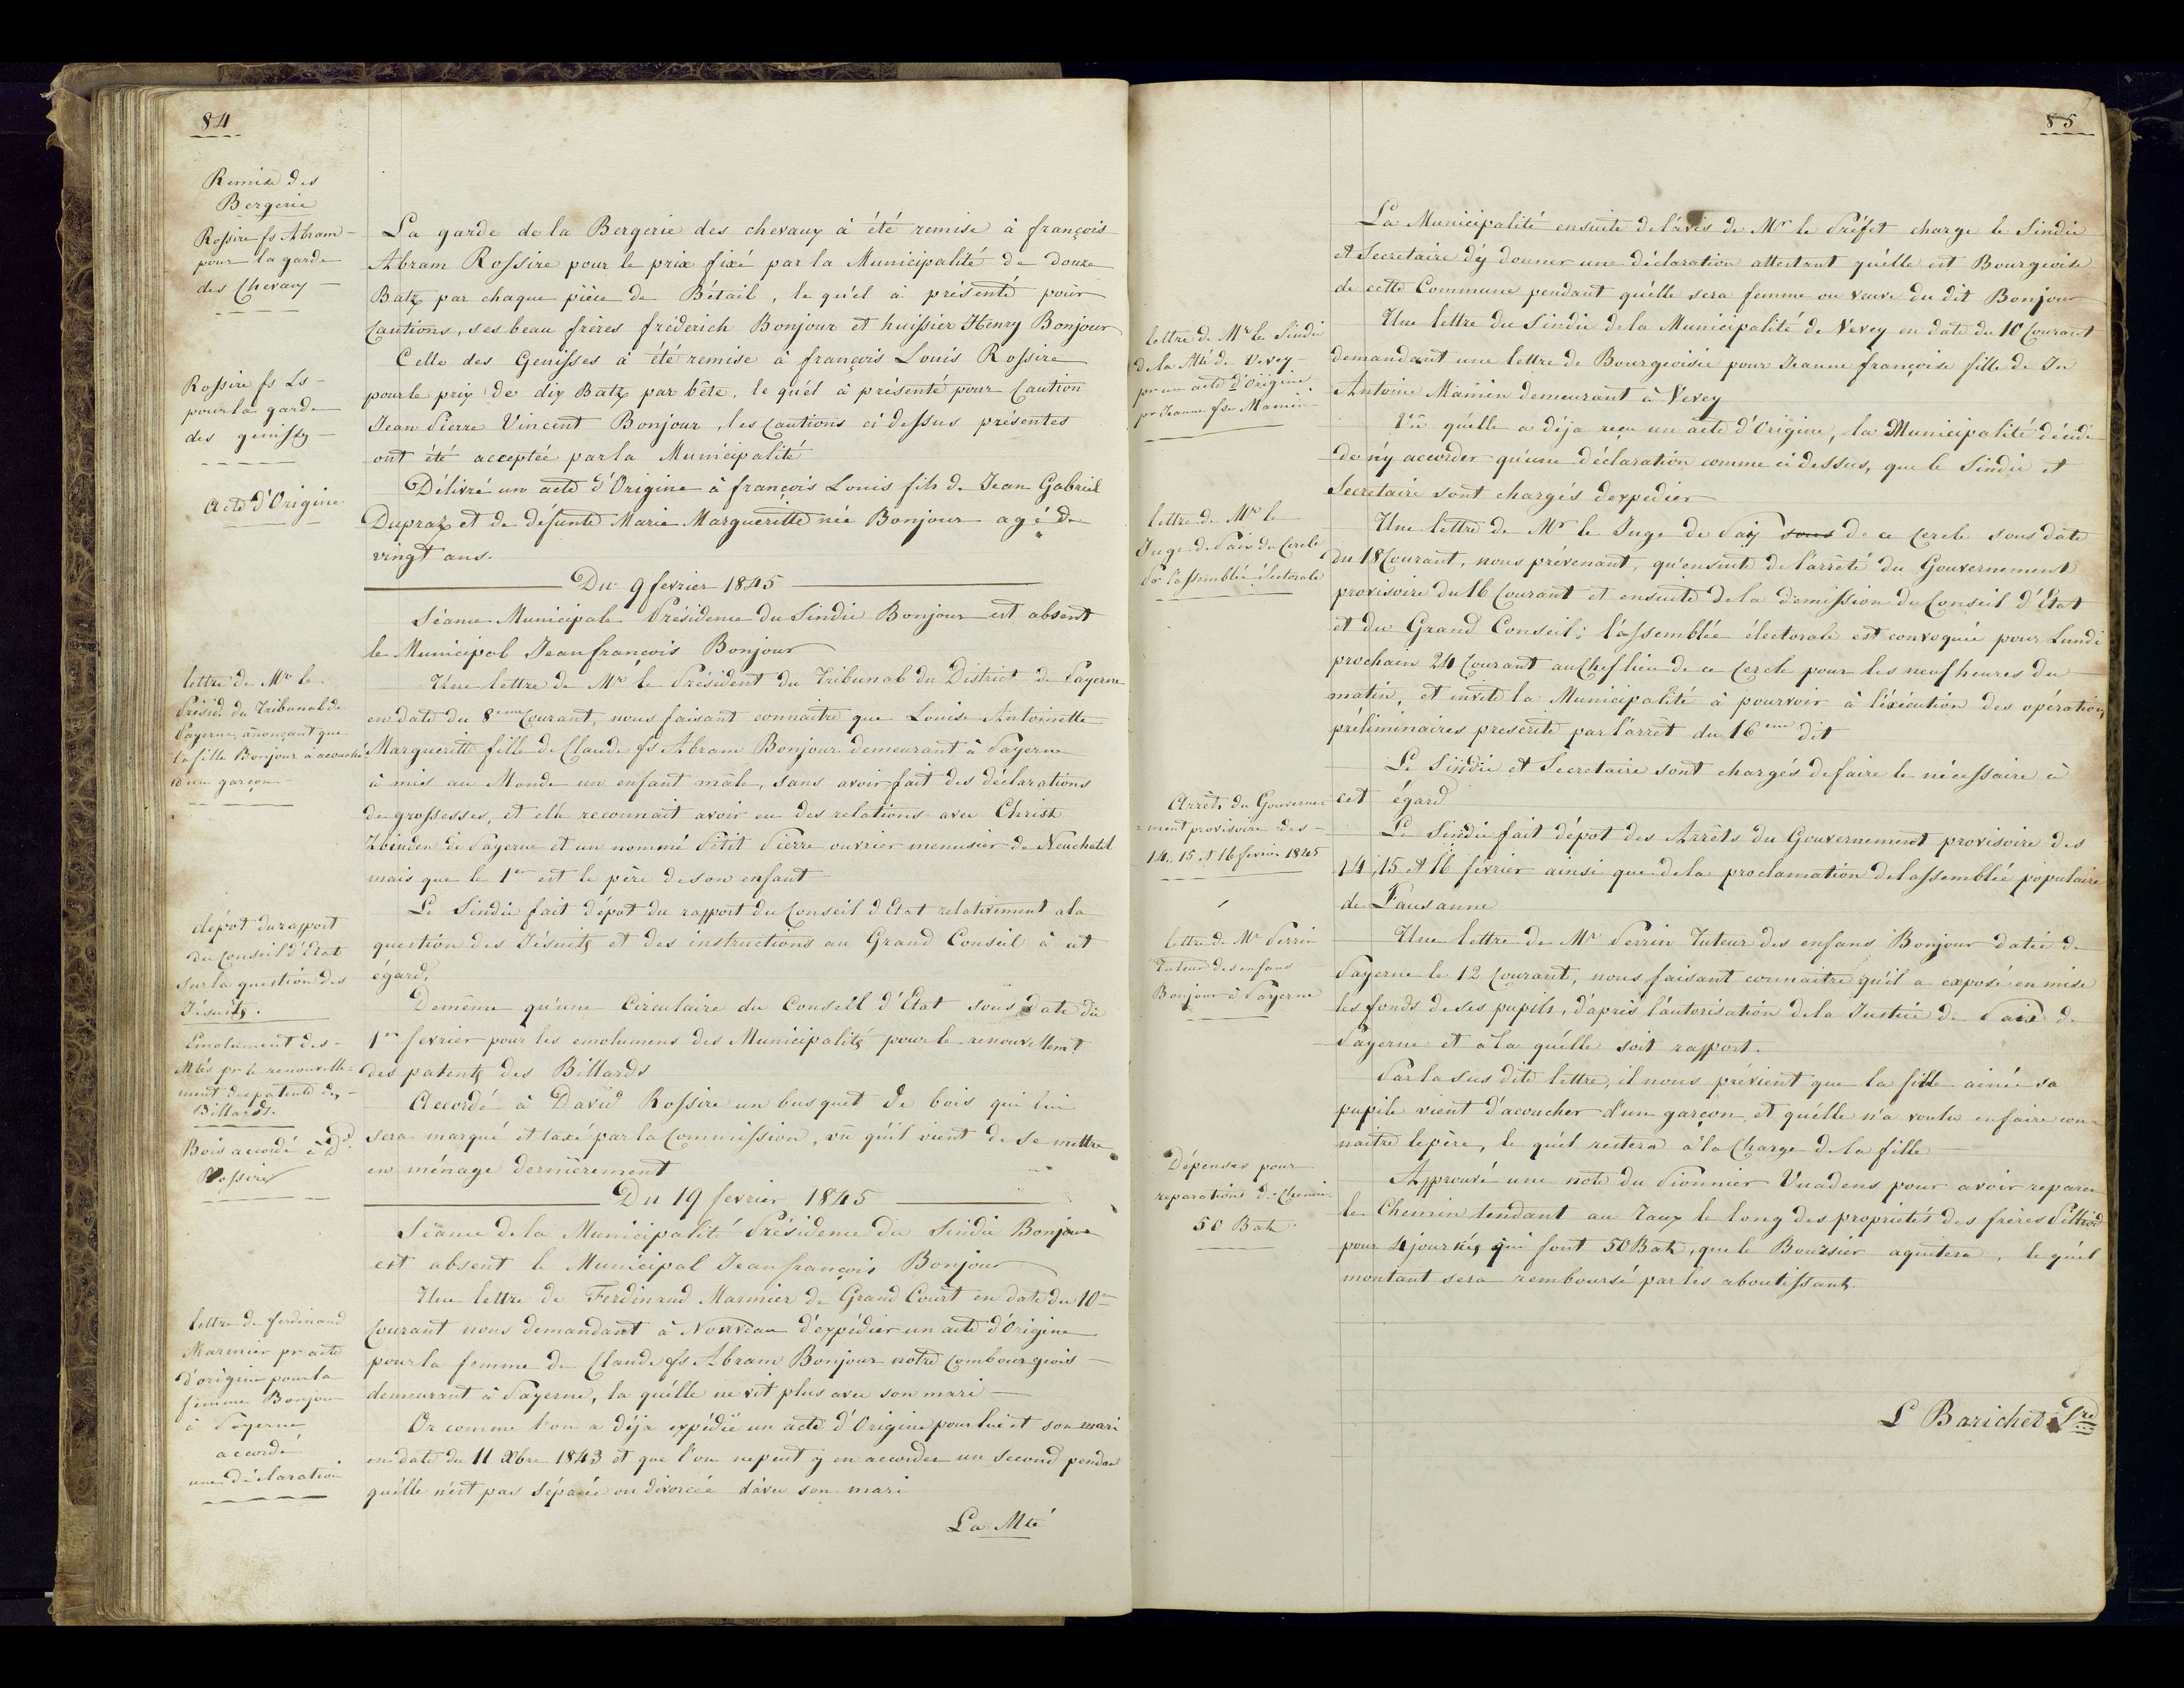 84
Remise des
Bergerie
Rossire fs Abram
pour la garde
des Chevaux
La garde de la Bergerie des chevaux à été remise à françois
Abram Rossire pour le prix fixé par la Municipalité de douze
Batz par chaque pièce de Bétail, le qu'el à présenté pour
Cautions, ses beau frères frederich Bonjour et huissier Henry Bonjour
Rossire fs Ls
pour la garde
des genissz
Celle des Genisses à été remise à françois Louis Rossire
pour le prix de dix Batz par bête, le qu'el à présenté pour Caution
Jean Pierre Vincent Bonjour, les Cautions ci dessus présentes
ont été acceptée par la Municipalité
Acte d'Origine
Délivré un acte d'Origine à françois Louis fils de Jean Gabriel
Dupraz et de défunte Marie Margueritte née Bonjour agé de
vingt ans.
Du 9 fevrier 1845
Séance Municipale Présidence du Sindic Bonjour est absent
le Municipal Jean françois Bonjour
lettre de Mr le
Présid. du Tribunal de
Payerne, anonçant que
la fille Bonjour à acouché
d'un garçon
Une lettre de Mr le Président du Tribunal du District de Payerne
en date du 8eme Courant, nous faisant connaitre que Louise Antoinette
Margueritte fille de Claude fs Abram Bonjour demeurant à Payerne
à mis au Monde un enfant mâle, sans avoir fait des déclarations
de grossesses, et elle reconnait avoir eu des relations avec Christ
Zbinden de Payerne et un nommé Petit Pierre ouvrier menusier de Neuchatel
mais que le 1er est le père de son enfant
dépot du rapport
du Conseil d'Etat
sur la question des
Jésuitz.
Le Sindic fait dépot du rapport du Conseil d'Etat relativement a la
question des Jésuitz et des instructions au Grand Conseil à cet
égard.
Emolument des
Mtés pr le renouvelle=
ment des patente des
Billards.
Demême qu'une Circulaire du Conseil d'Etat sous date du
1er fevrier pour les emolumens des Municipalitz pour le renouvellemt
des patentz des Billards
Bois accordé à Dd
Rossire
Accordé à David Rossire un busquet de bois qui lui
sera marqué et taxé par la Commission, vû qu'il vient de se mettre
en ménage dernièrement
Du 19 fevrier 1845
Séance de la Municipalité Présidence du Sindic Bonjour
est absent le Municipal Jean françois Bonjour
lettre de ferdinand
Marmier pr acte
d'origine pour la
femme Bonjour
à Payerne
accordé
une déclaration
Une lettre de Ferdinand Marmier de Grand Court en date du 10
Courant nous demandant à Nouveau d'expédier un acte d'Origine
pour la femme de Claude fs Abram Bonjour notre Combourgeois
demeurant à Payerne, la qu'elle ne vit plus avec son mari
Or comme l'on a déja expédié un acte d'Origine pour lui et son mari
en date du 11 Xbre 1843 et que l'on ne peut y en accorder un second pendan
qu'elle n'est pas séparée ou divorcée d'avec son mari
La Mté
85
La Municipalité ensuite de l'avis de Mr le Préfet charge le Sindic
et Secretaire d'y donner une déclaration attestant qu'elle est Bourgeoise
de cette Commune pendant qu'elle sera femme ou veuve du dit Bonjour
lettre de Mr le Sindic
de la Mté de Vevey
pr un acte d'Origine
pr Jeanne fse Mamin
Une lettre du Sindic de la Municipalité de Vevey en date du 10 Courant
demandant une lettre de Bourgeoisie pour Jeanne françoise fille de Jn
Antoine Mamin demeurant à Vevey
Vû qu'elle a déja reçu un acte d'Origine, la Municipalité décide
de n'y accorder qu'une déclaration comme ci dessus, que le Sindic et
Secretaire sont chargés d'expedier
lettre de Mr le
Juge de Paix du Cercle
Pr l'assemblée électorale
Une lettre de Mr le Juge de Paix sous de ce Cercle sous date
du 18 Courant, nous prévenant, qu'ensuite de l'arrêté du Gouvernement
provisoire du 16 Courant et ensuite de la démission du Conseil d'Etat
et du Grand Conseil; l'assemblée électorale est convoquée pour Lundi
prochain 24 Courant au Chef lieu de ce Cercle pour les neuf heures du
matin, et invite la Municipalité à pourvoir à l'éxécution des opérations
préliminaires prescrite par l'arrêt du 16eme dit
Le Sindic et Secretaire sont chargés de faire le nécessaire à
cet égard
Arrêts du Gouverne=
=ment provisoire des
14, 15 et 16 fevrier 1845
Le Sindic fait dépot des Arrêts du Gouvernement provisoire des
14, 15 et 16 février ainsi que de la proclamation de l'assemblée populaire
de Lausanne
lettre de Mr Perrin
Tuteur des enfans
Bonjour à Payerne
Une lettre de Mr Perrin Tuteur des enfans Bonjour datée de
Payerne le 12 Courant, nous faisant connaitre qu'il a exposé en mise
les fonds de ses pupils, d'après l'autorisation de la Justice de Paix de
Payerne et a la qu'elle soit rapport.
Par la sus dite lettre, il nous prévient que la fille ainée sa
pupile vient d'acoucher d'un garçon, et qu'elle n'a voulu en faire con=
naitre le père, le qu'el restera à la Charge de la fille
Dépenses pour
reparations de Chemin
50 Batz
Approuvé une note du Pionnier Vuadens pour avoir reparer
le Chemin tendant au Taux le long des proprietés des frères
pour 4 journées qui font 50 Batz, que le Boursier aquitera, le qu'el
montant sera remboursé par les aboutissants.
L Barichet Sre